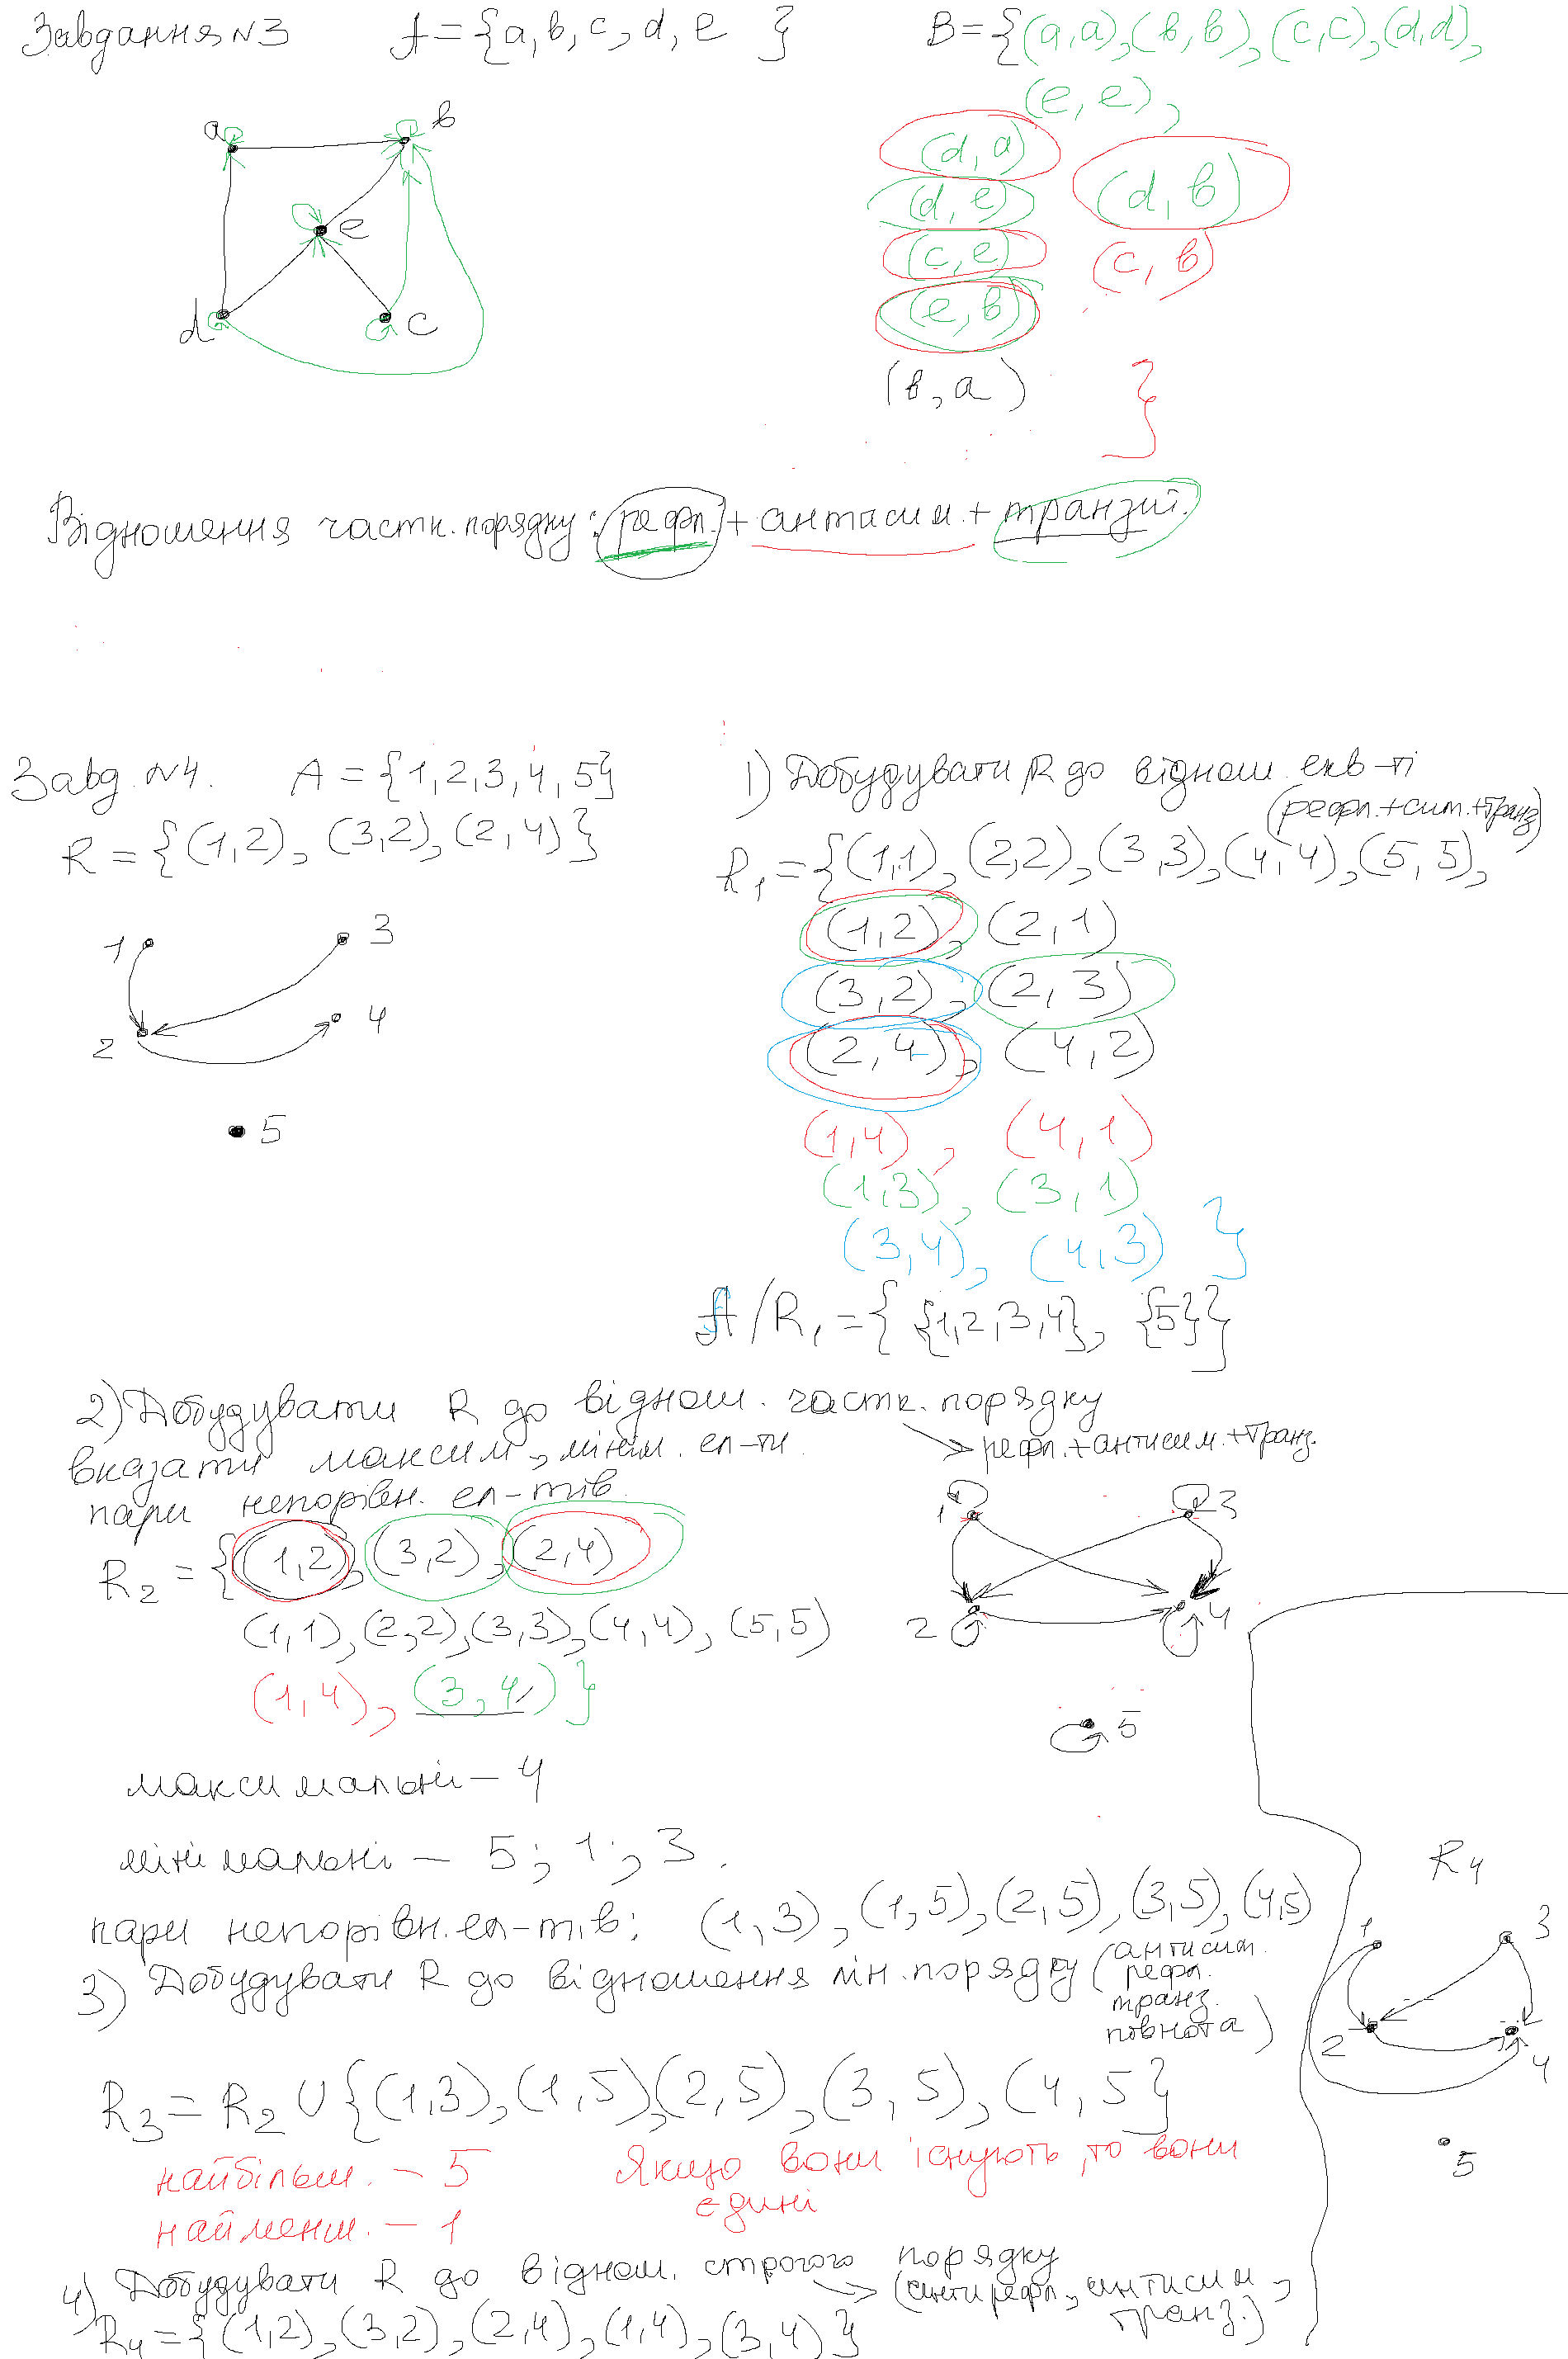 Завдання №3 A = {a, b, c, d, e } B = {(a,a), (b,b), (c,c), (d,d),
(e, e),
(d, a)
(d, e) (d, b)
(c, e) (c, b)
(e, b)
(b, a) }
a b
e
d c
Відношення частк. порядку: рефл. + антисим. + транзит.
Завд. №4. A = {1, 2, 3, 4, 5}
R = {(1,2), (3,2), (2,4)}
1 3
2 4
5
1) Добудувати R до віднош. екв-ті
(рефл. + сим. + транз)
R₁ = {(1,1), (2,2), (3,3), (4,4), (5,5),
(1,2), (2,1)
(3,2), (2,3)
(2,4), (4,2)
(1,4), (4,1)
(1,3), (3,1)
(3,4), (4,3) }
A/R₁ = { {1,2,3,4}, {5}}
2) Добудувати R до віднош. частк. порядку
рефл. + антисим. + транз.
вказати максим, мінім. ел-ти
пари непорівн. ел-тів.
R₂ = {(1,2), (3,2), (2,4)
(1,1), (2,2), (3,3), (4,4), (5,5)
(1,4), (3,4) }
1 3
2 4
5
максимальні – 4
мінімальні – 5; 1; 3.
пари непорівн. ел-тів: (1,3), (1,5), (2,5), (3,5), (4,5)
3) Добудувати R до відношення лін. порядку (антисим.
рефл.
транз.
повнота)
R₃ = R₂ ∪ {(1,3), (1,5), (2,5), (3,5), (4,5}
найбільш. – 5 Якщо вони існують, то вони
єдині
найменш. – 1
4) Добудувати R до віднош. строгого порядку
(антирефл., антисим,
транз.)
R₄ = {(1,2), (3,2), (2,4), (1,4), (3,4)}
R₄
1 3
2 4
5